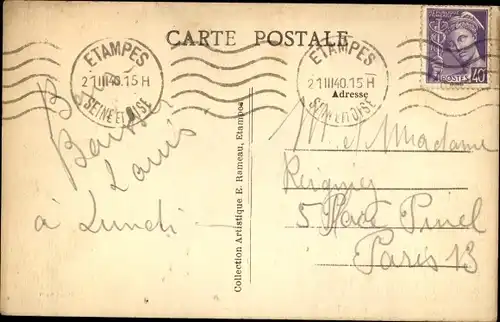 CARTE POSTALE
ETAMPES
21III40.15H
SEINE ET OISE
ETAMPES
21III40.15H
SEINE ET OISE
POSTES 40
Adresse
Louis
à Lundi
Collection Artistique E. Rameau, Etampes
M. et Madame
5 Place Pinel
Paris 13